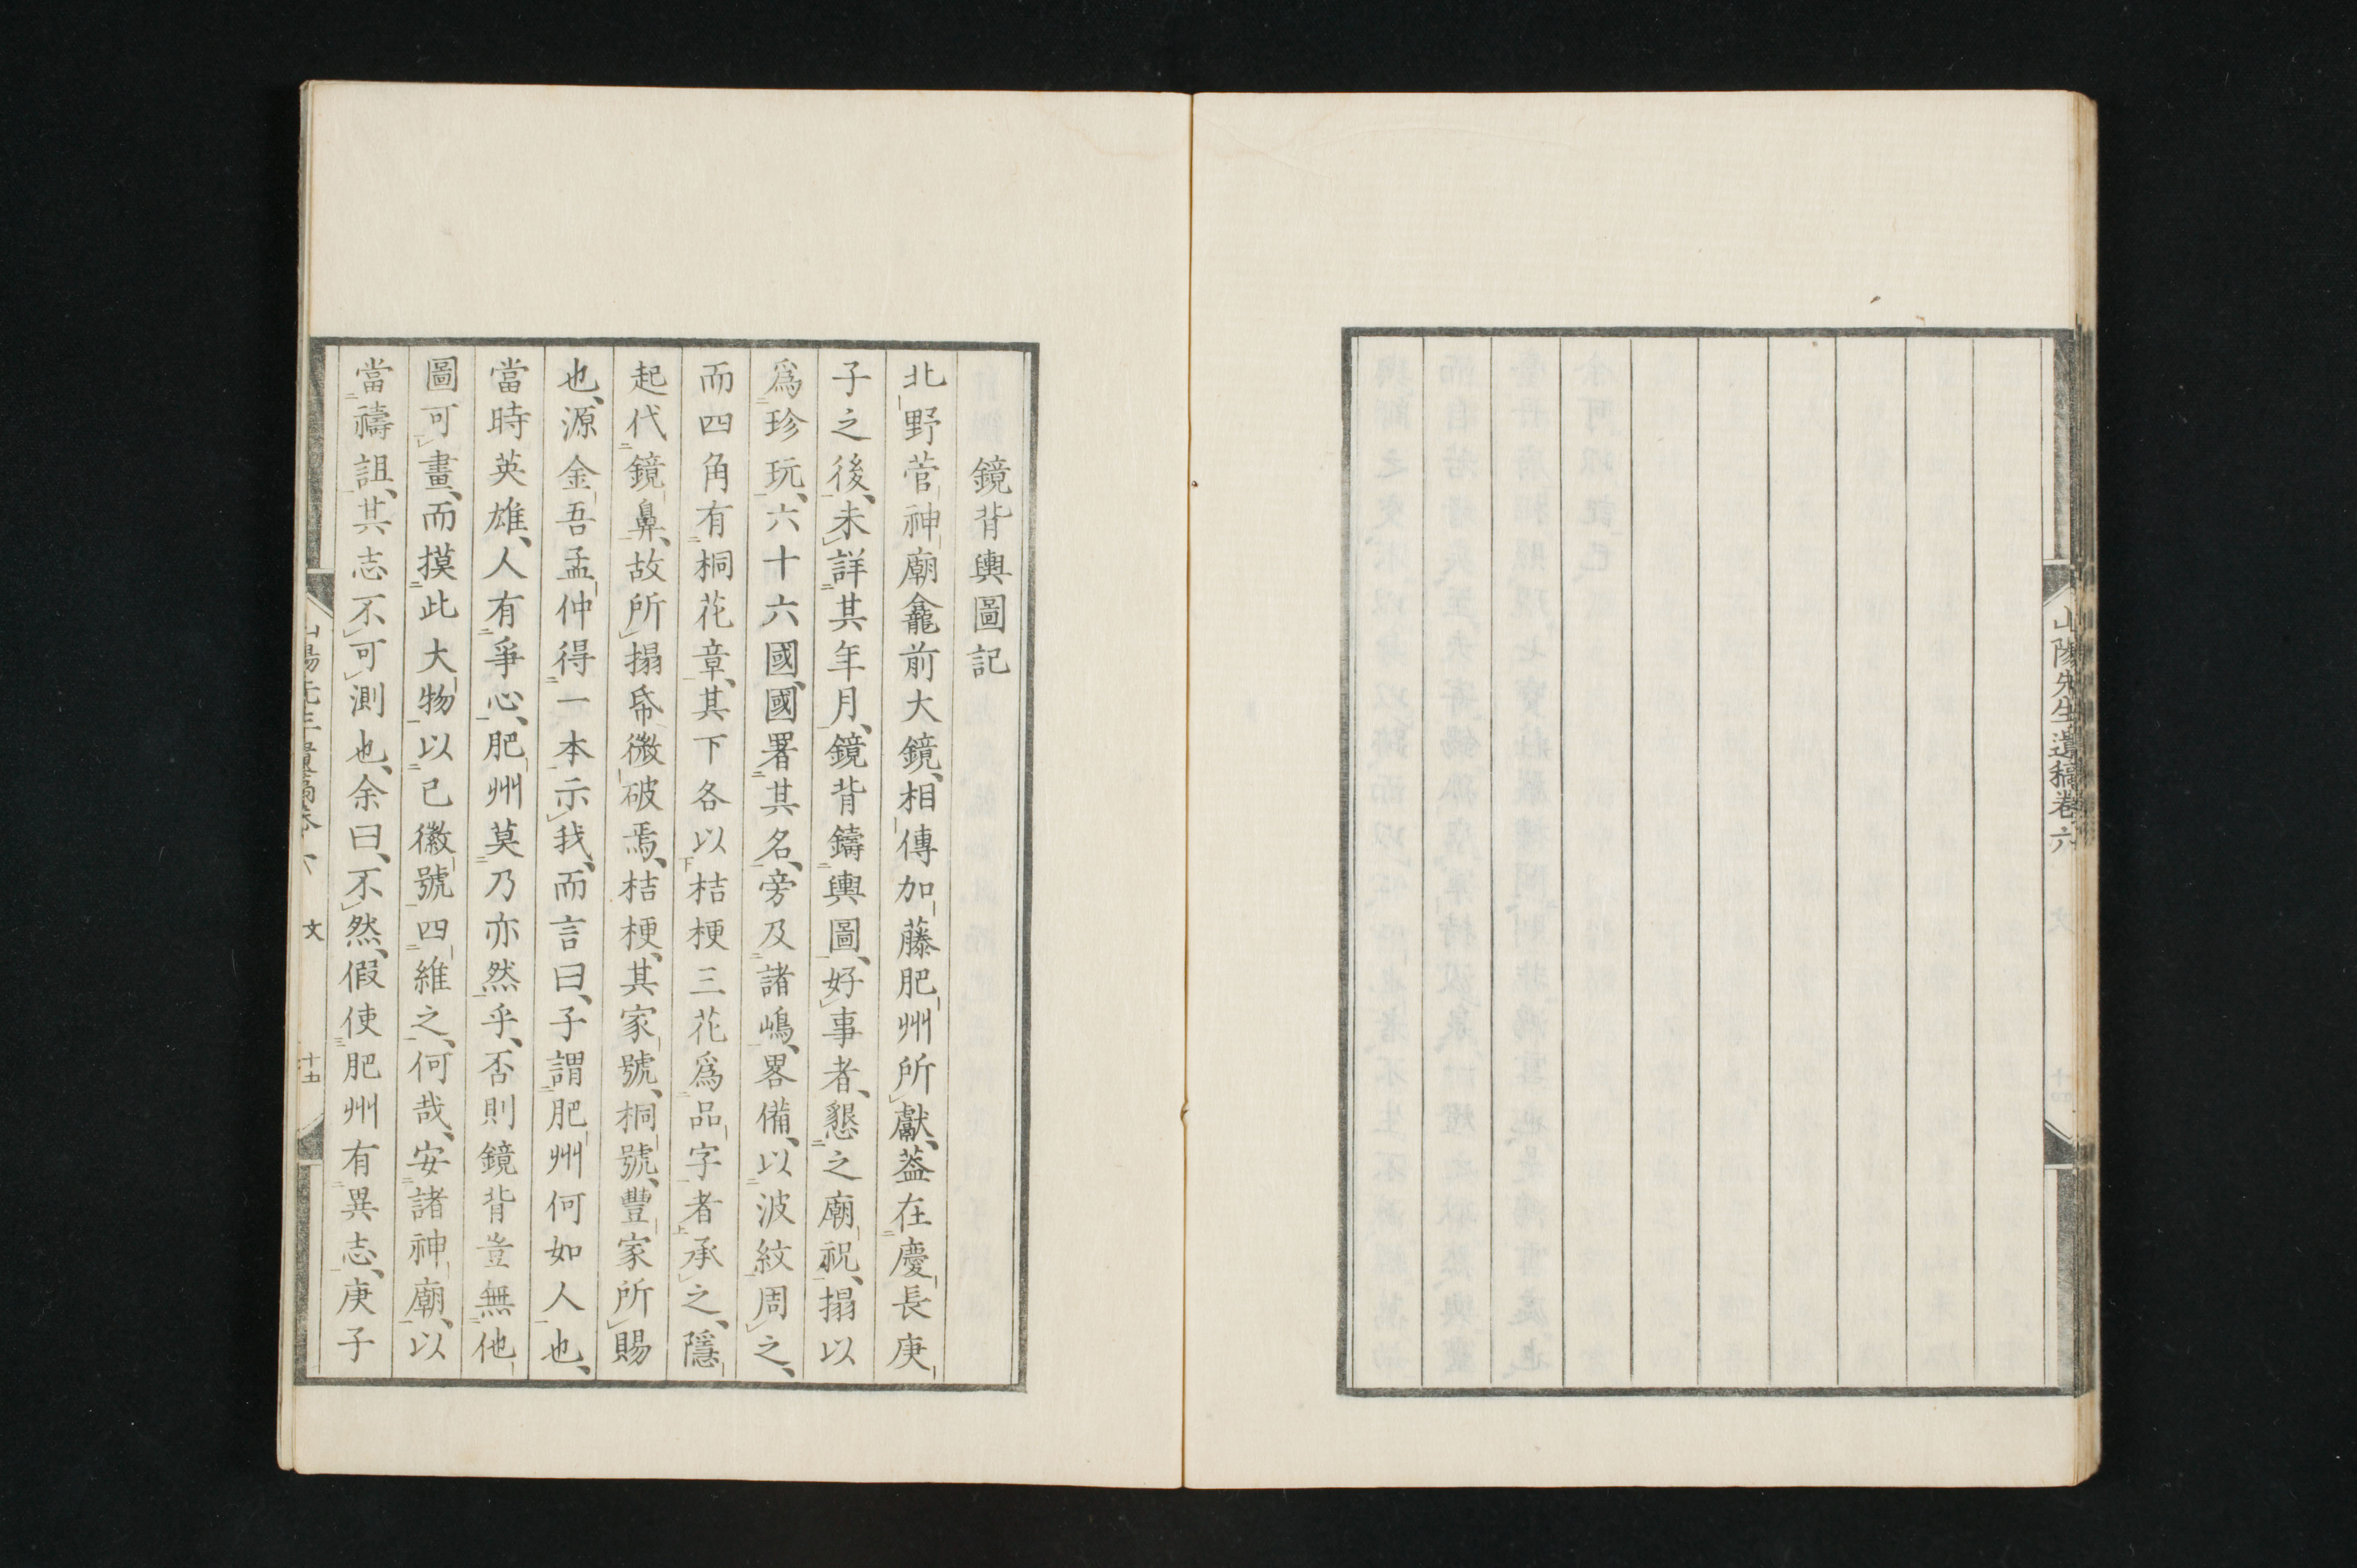 山陽先生遺稿卷六
鏡背輿圖記
北野菅神廟龕前大鏡、相傳加藤肥州所獻、葢在慶長庚
子之後、未詳其年月、鏡背鑄輿圖、好事者、懇之廟祝、搨以
爲珍玩、六十六國、國署其名、旁及諸嶋、畧備、以波紋周之、
而四角有桐花章、其下各以桔梗三花爲品字者承之、隱
起代鏡鼻、故所搨帋微破焉、桔梗、其家號、桐號、豐家所賜
也、源金吾孟仲得一本示我、而言曰、子謂肥州何如人也、
當時英雄、人有爭心、肥州莫乃亦然乎、否則鏡背豈無他
圖可畫、而摸此大物、以已徽號四維之、何哉、安諸神廟、以
當禱詛、其志不可測也、余曰、不然、假使肥州有異志、庚子
文
十五